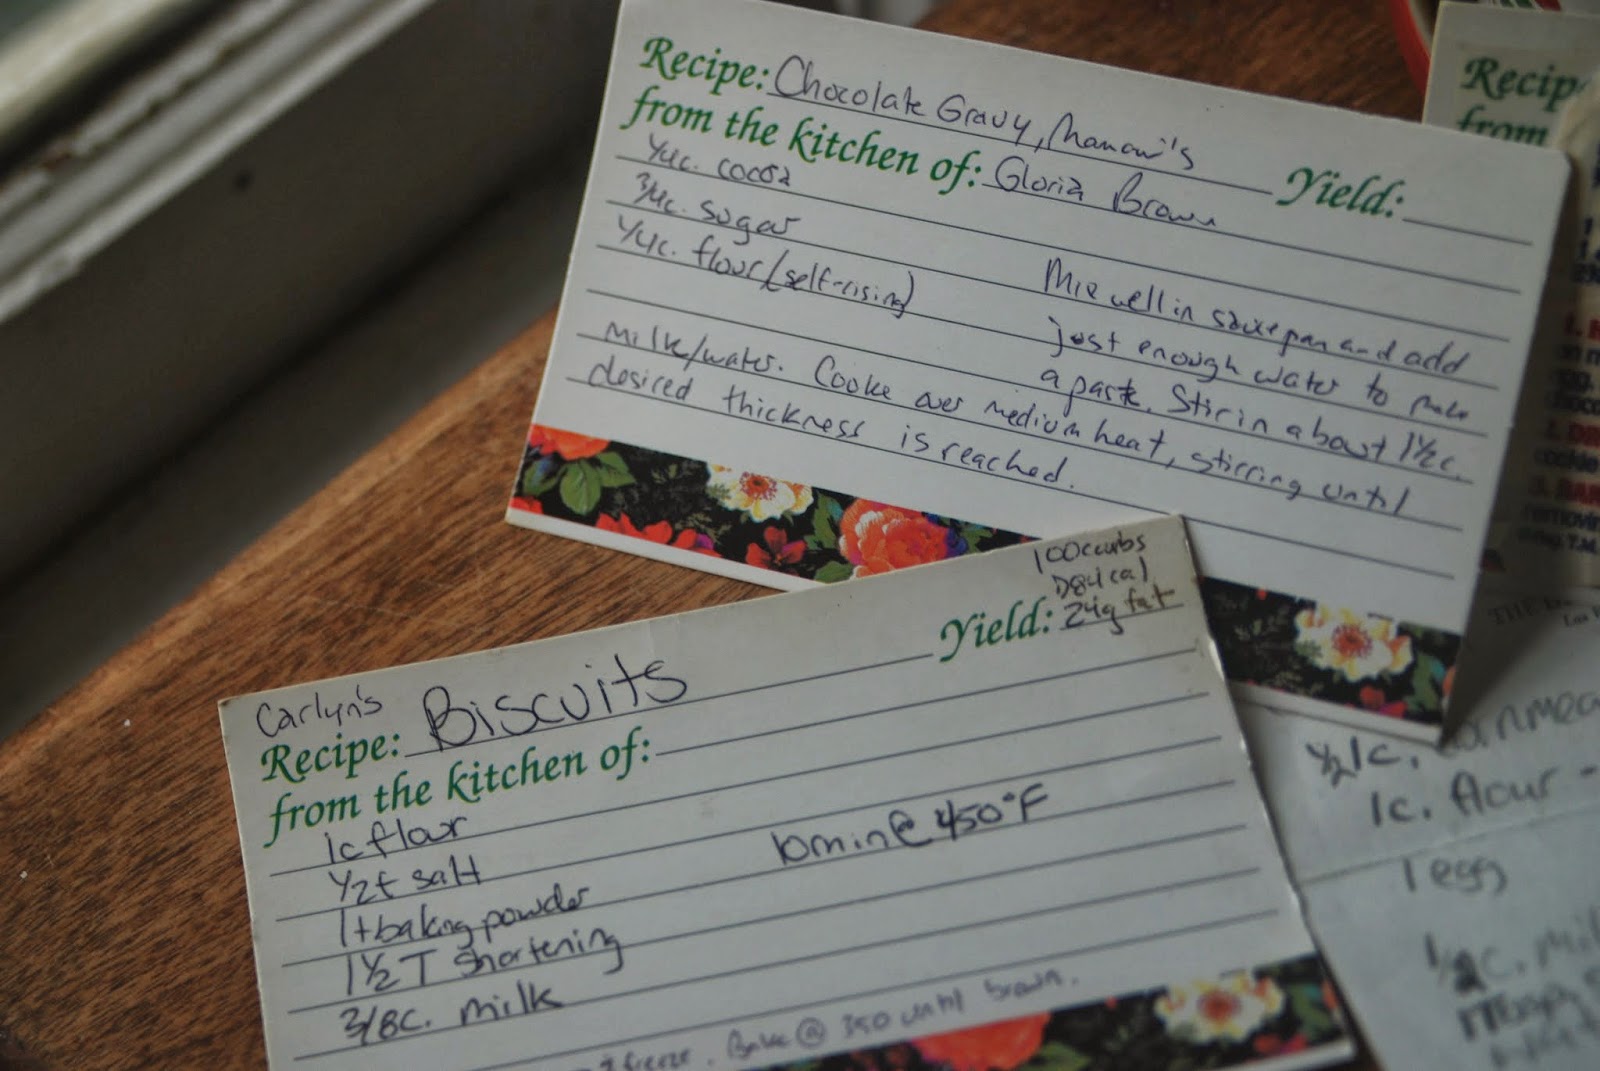 Recipe: Chocolate Gravy, Mamaw's
from the kitchen of: Gloria Brown Yield:
1/4c. cocoa
3/4c. sugar
1/4c. flour (self-rising)
Mix well in saucepan and add
just enough water to make
a paste. Stir in about 1 1/2c.
milk/water. Cooke over medium heat, stirring until
desired thickness is reached.
100ccarbs
cal
Yield: 24g fat
Carlyn's
Recipe: Biscuits
from the kitchen of:
1c flour
1/2t salt
1t baking powder
1 1/2 T shortening
3/8c. milk
10min@ 450°F
freeze. Bake @ 350 until brown.
Recip
from
1/2 1c. cornmea
1c. flour -
1 egg
1/2 c. mil